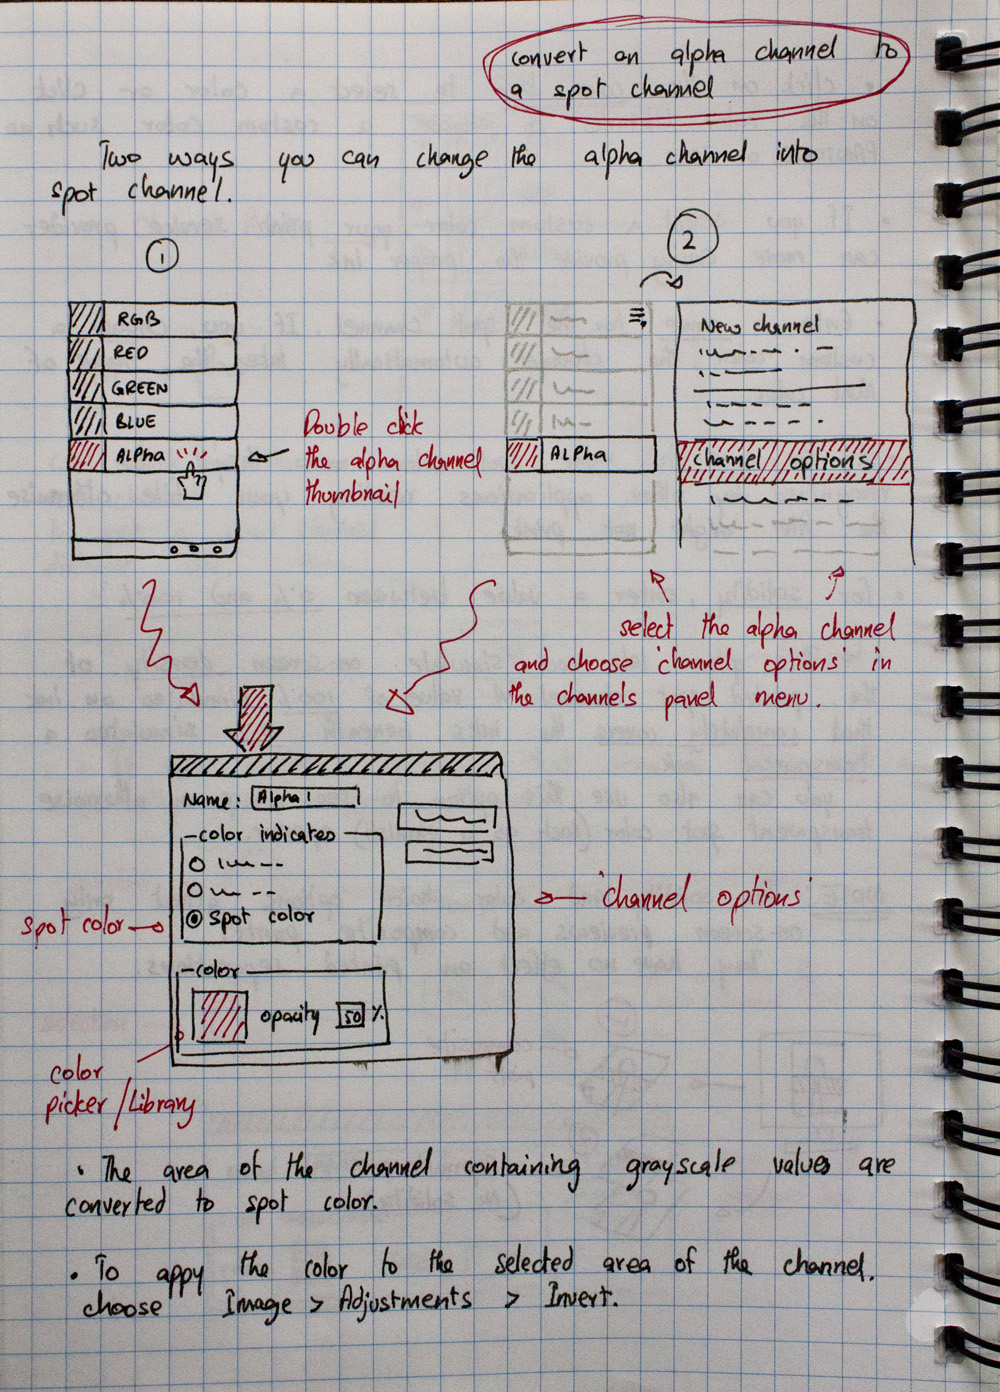 convert an alpha channel to
a spot channel
Two ways you can change the alpha channel into
spot channel.
1
2
RGB
RED
GREEN
BLUE
ALPHA
Double click
the alpha channel
thumbnail
ALPHA
New channel
channel options
select the alpha channel
and choose 'channel options' in
the channels panel menu.
Name: Alpha 1
color indicates
spot color
spot color
'channel options'
color
opacity 50 %
color
picker/Library
• The area of the channel containing grayscale values are
converted to spot color.
• To appy the color to the selected area of the channel.
choose Image > Adjustments > Invert.